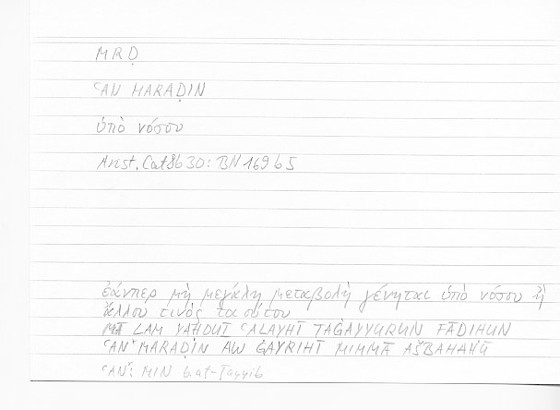 MRḌ
ʿAN MARAḌIN
ὑπὸ νόσου
Arist. Cat 8b30: BN 169 b5
ἐάνπερ μὴ μεγάλη μεταβολὴ γένηται ὑπὸ νόσου ἢ
ἄλλου τινὸς τοιούτου
MĀ LAM YAḤDUṮ ʿALAYHĪ TAĠAYYURUN FĀDIḤUN
ʿAN MARAḌIN AW ĠAYRIHĪ MIMMĀ AŠBAHAHŪ
ʿAN: MIN b.aṭ-Ṭayyib